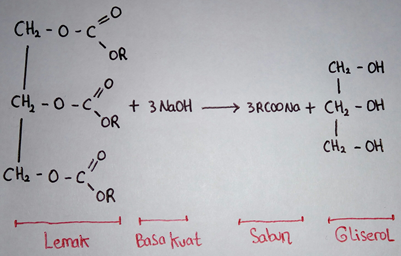 CH₂ - O - C
O
OR
CH₂ - O - C
O
OR
+ 3NaOH → 3RCOONa +
CH₂ - OH
CH₂ - OH
CH₂ - OH
CH₂ - O - C
O
OR
Lemak Basa kuat Sabun Gliserol